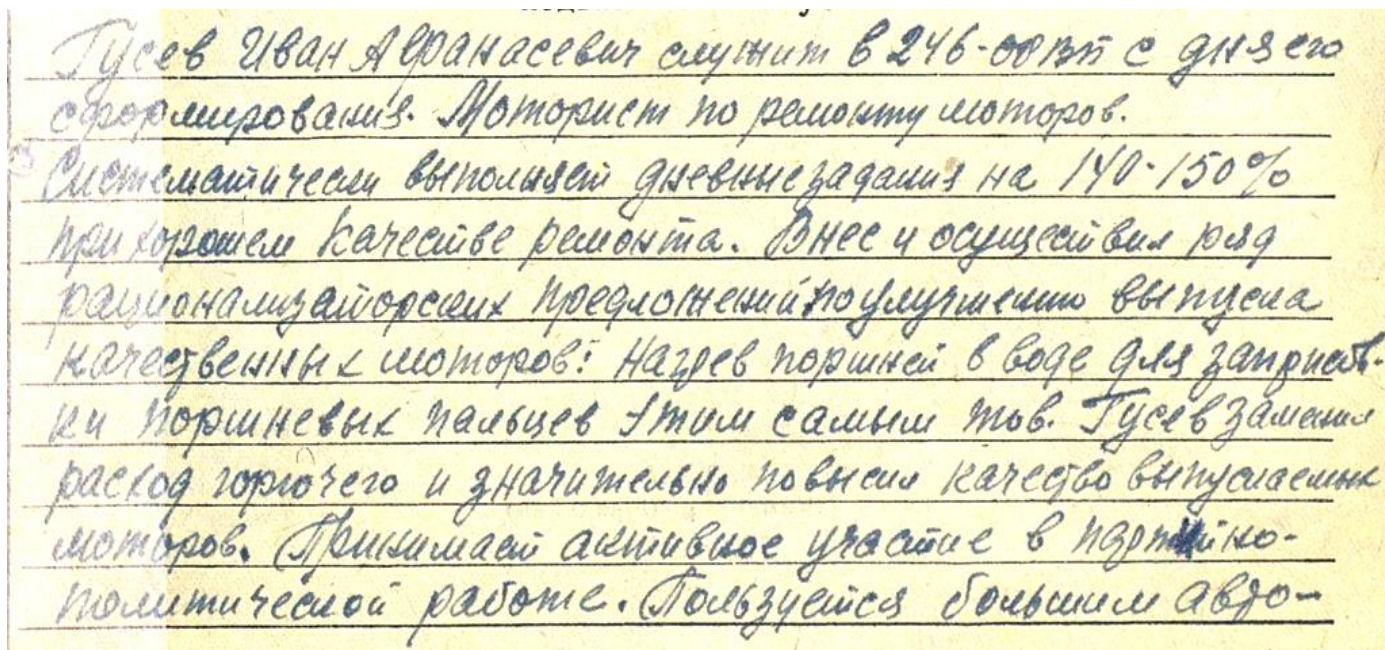 Гусев Иван Афанасевич служит в 246-ОРВП с дня его
сформирования. Моторист по ремонту моторов.
Систематически выполняет дневные задания на 140-150%
при хорошем качестве ремонта. Внес и осуществил ряд
рационализаторских предложений по улучшению выпуска
качественных моторов: Нагрев поршней в воде для
ки поршневых пальцев Этим самым тов. Гусев заменил
расход горючего и значительно повысил качество выпускаемых
моторов. Принимает активное участие в партийно-
политической работе. Пользуется большим авто-